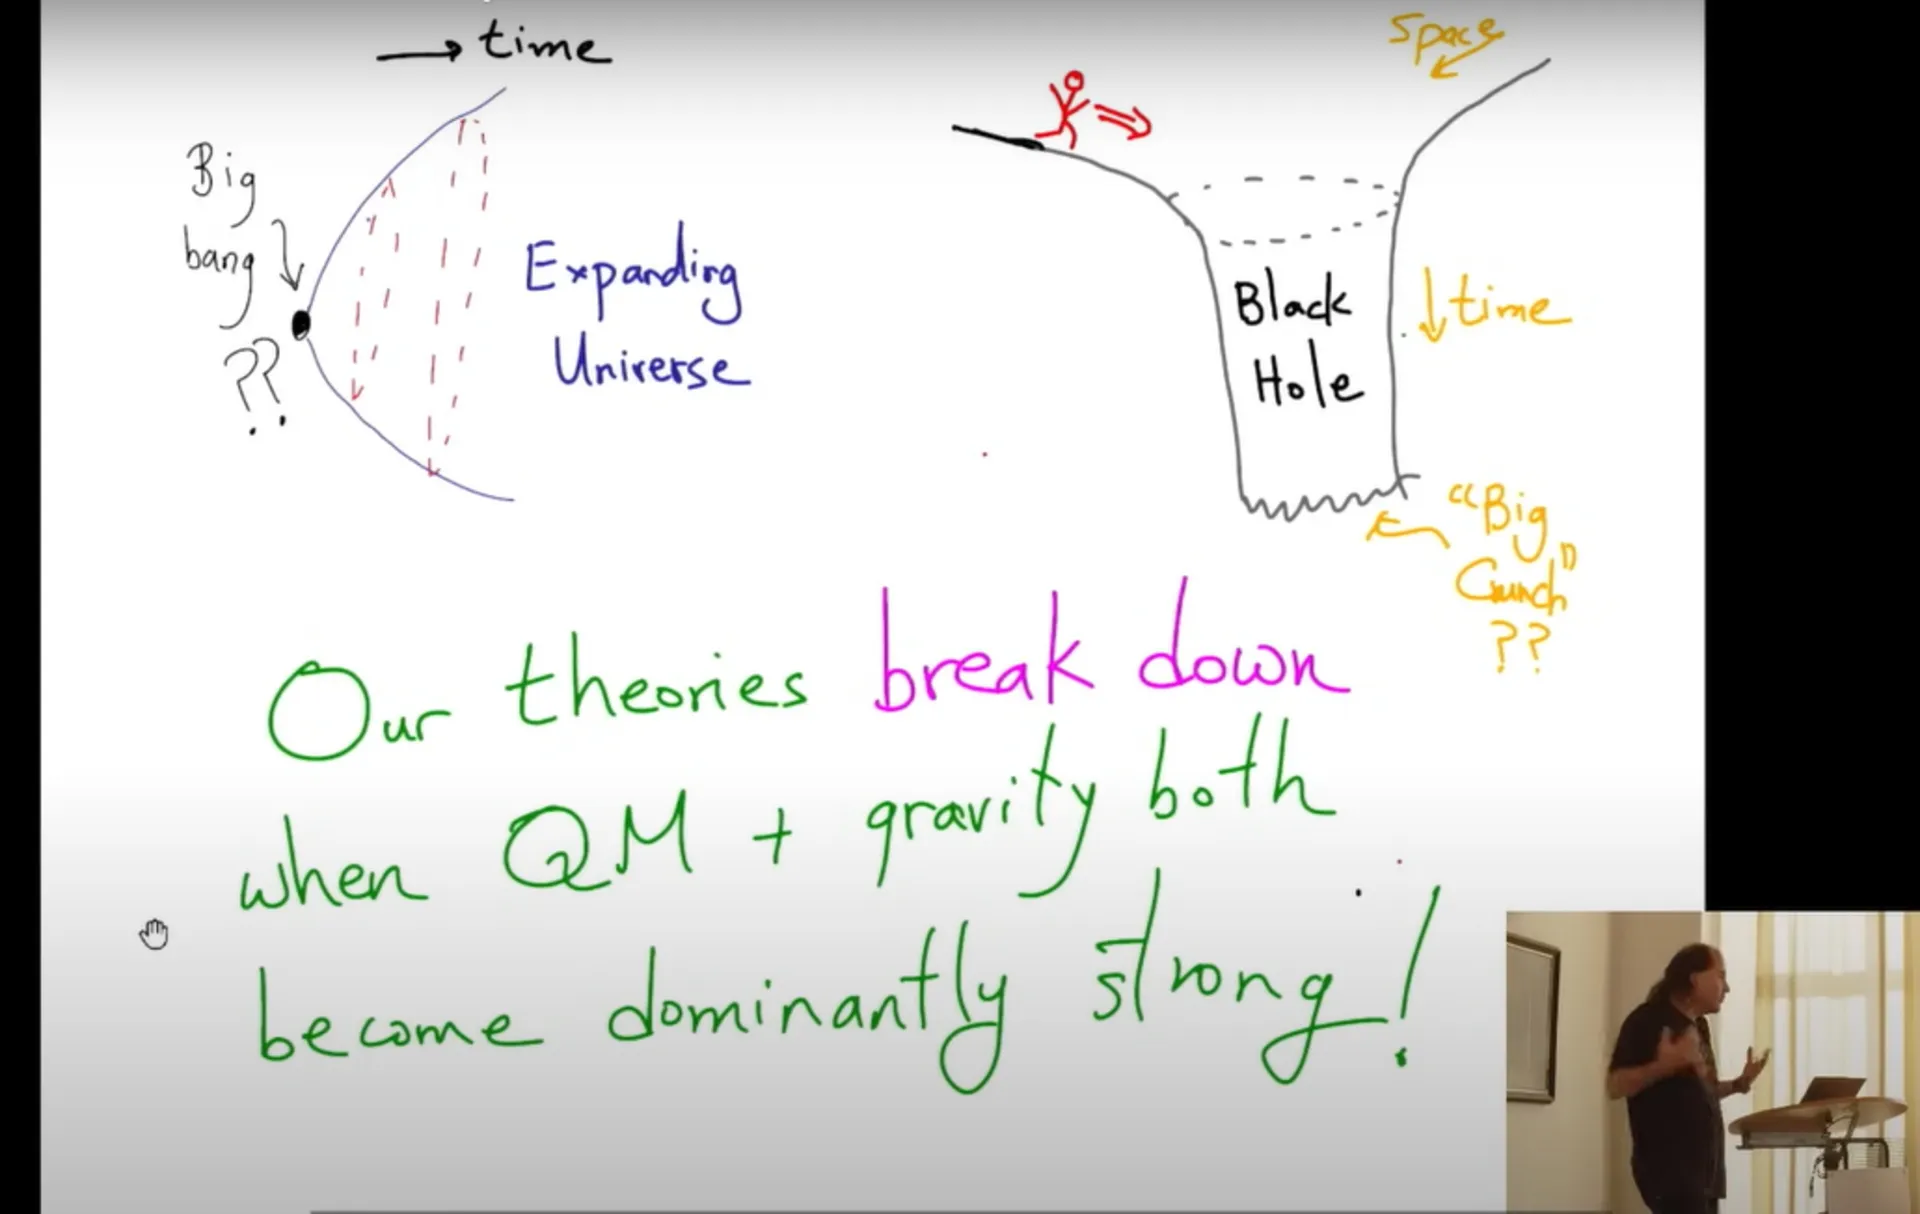 → time
Big
bang
??
Expanding
Universe
Space
Black
Hole
↓ time
"Big
Crunch"
??
Our theories break down
when QM + gravity both
become dominantly strong!